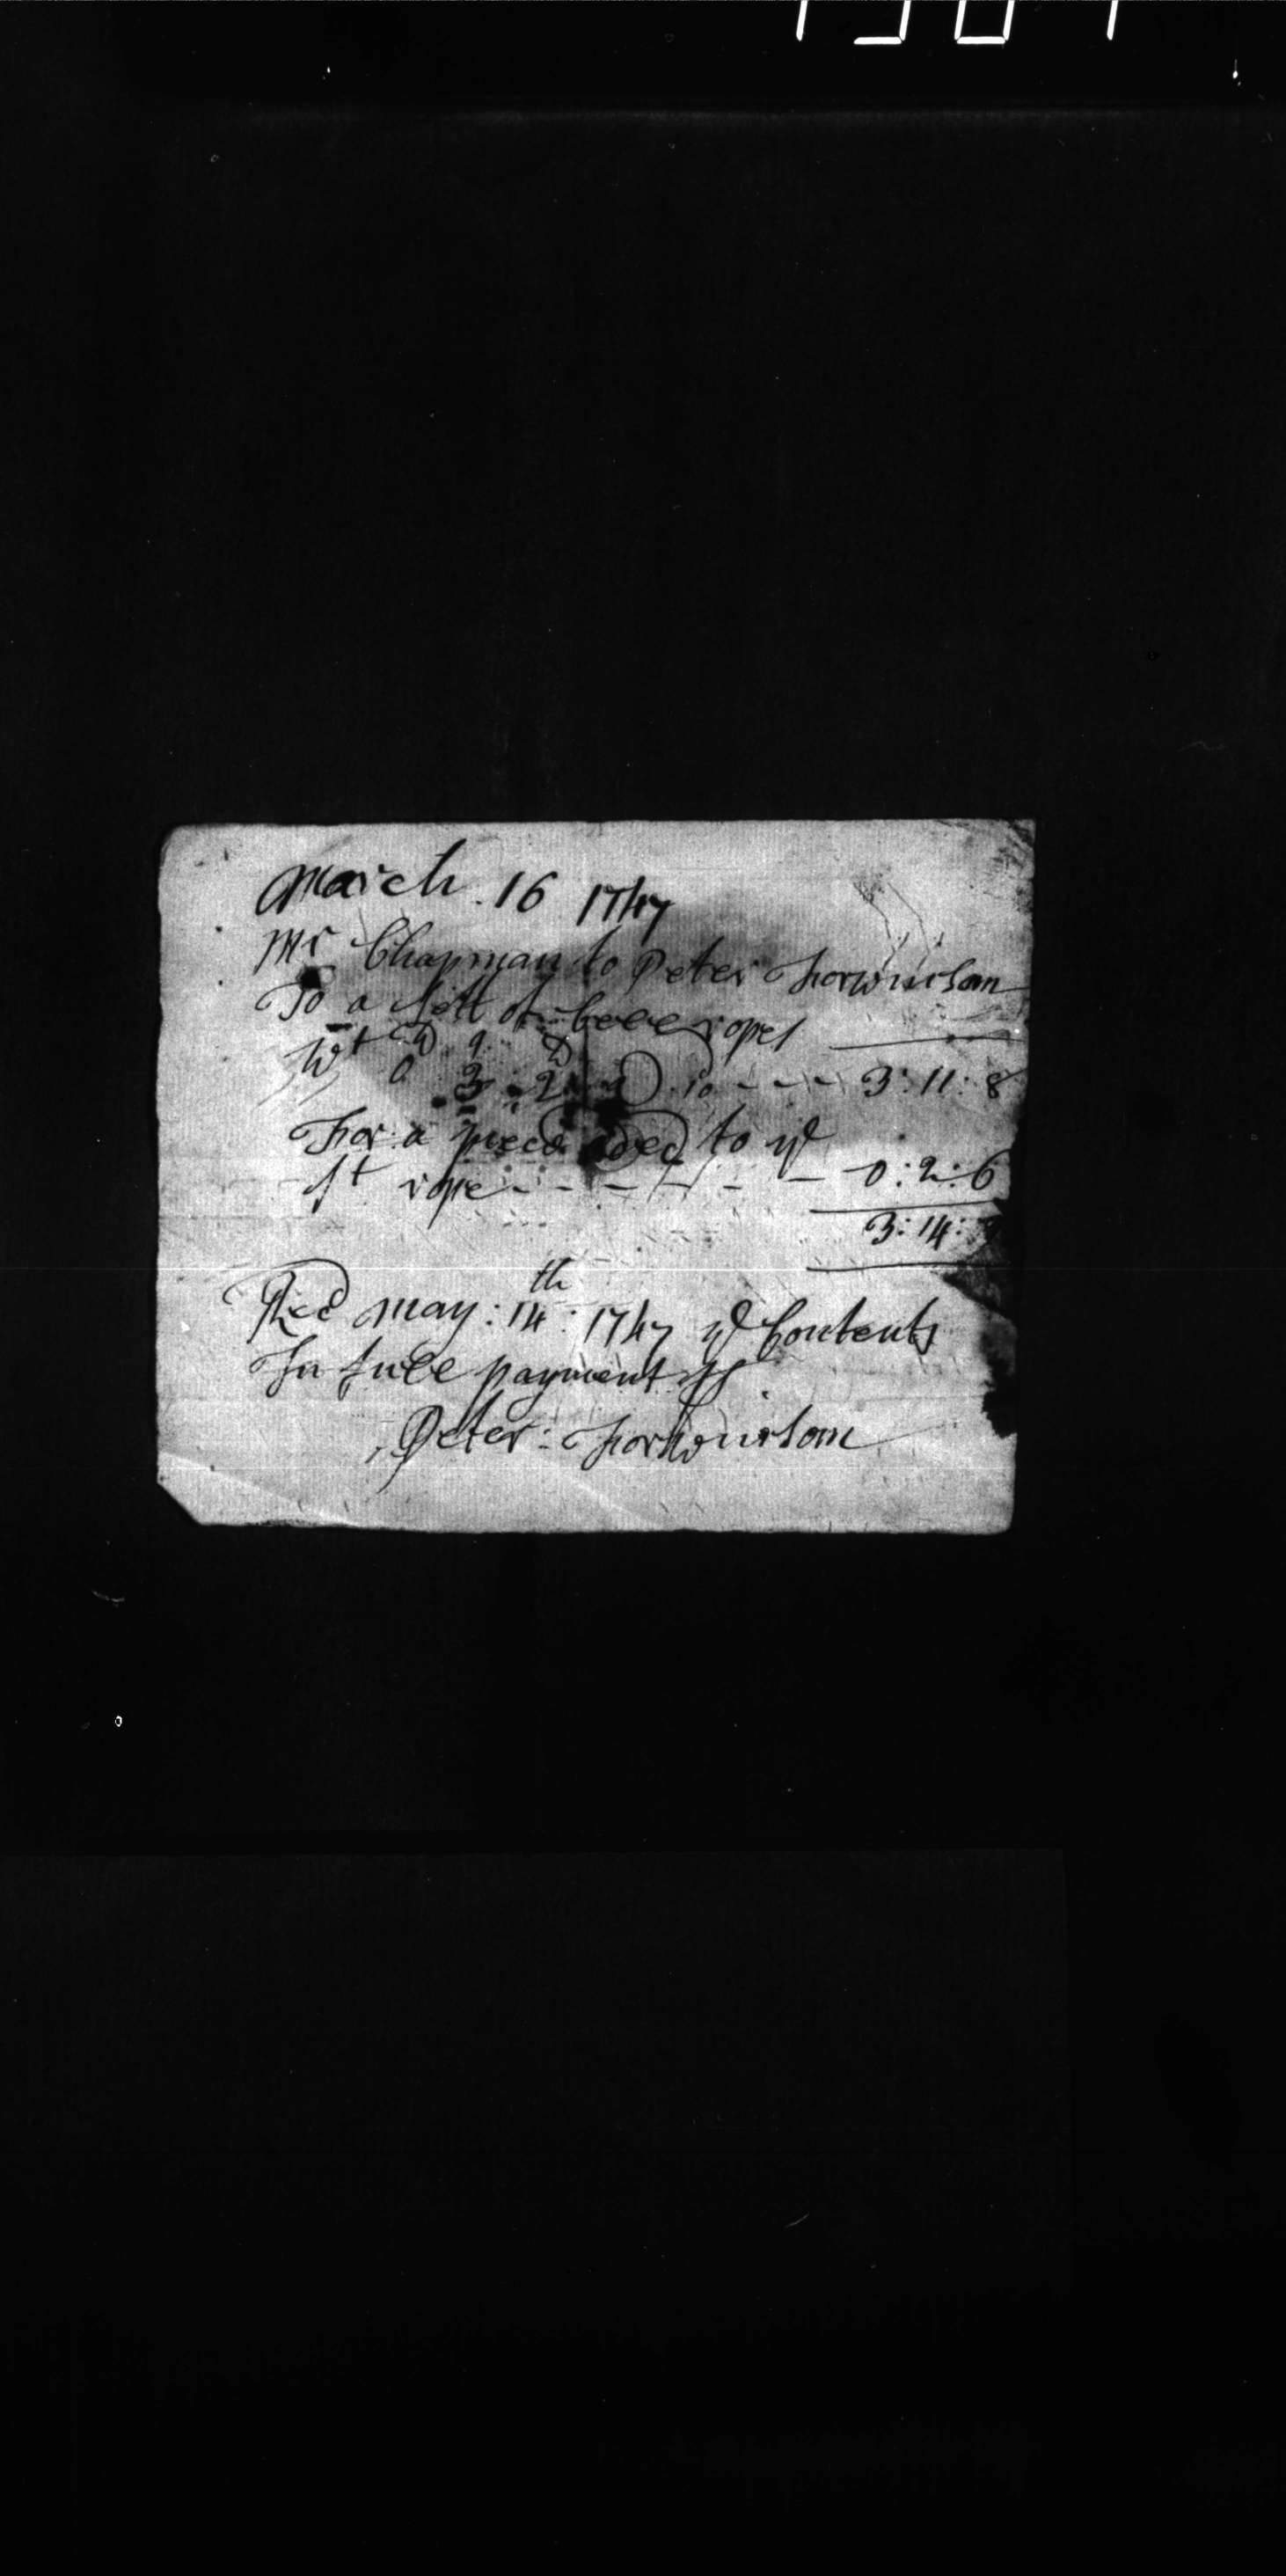 March 16 1747
Mr Chapman to Peter Forwinson
To a sett of bell ropes
Wt C q
0 3 : 2 10 - - - - 3 : 11 : 8
For a piece aded to ye
st rope - - - - - - 0 : 2 : 6
3 : 14 :
Recd may : 14th : 1747 ye Contents
In full payment
Peter : Forwinson